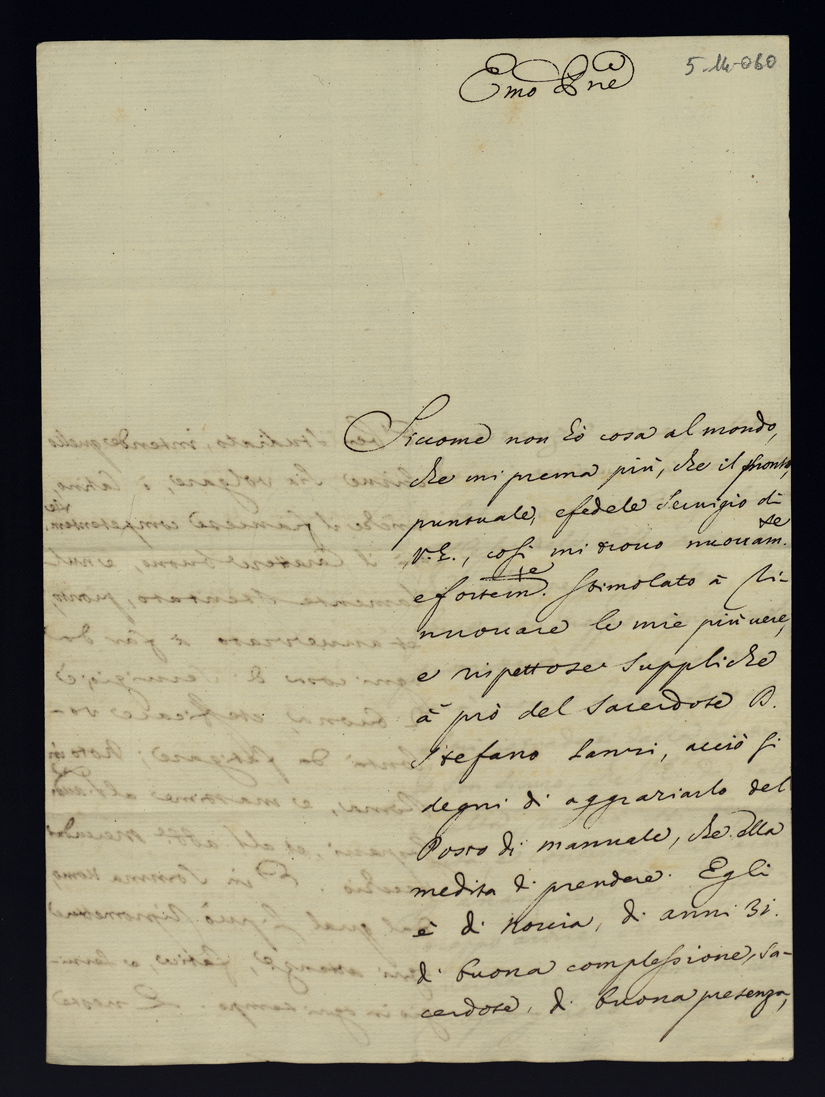 Emo Pne
5-14-060
Siccome non hò cosa al mondo,
che mi prema più, che il pronto,
puntuale, e fedele servigio di
V.E., così mi trovo nuovam.te
e fortem.te stimolato à ri-
nuovare le mie più vere,
e rispettose suppliche
à prò del Sacerdote D.
Stefano Lanzi, acciò si
degni di aggraziarlo del
Posto di manuale, che ella
medita di prendere. Egli
è di Norcia, di anni 31.
di buona complessione, sa-
cerdote, di buona presenza,